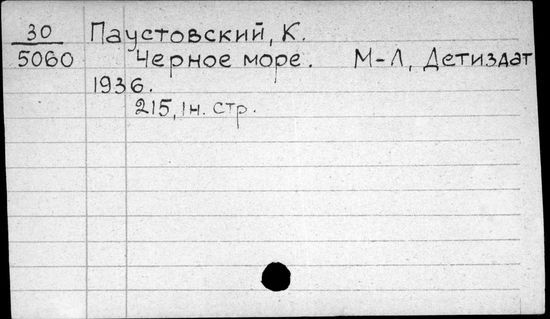 30 Паустовский, К.
5060 Черное море. М-Л, Детиздат
1936.
215, 1н. стр.